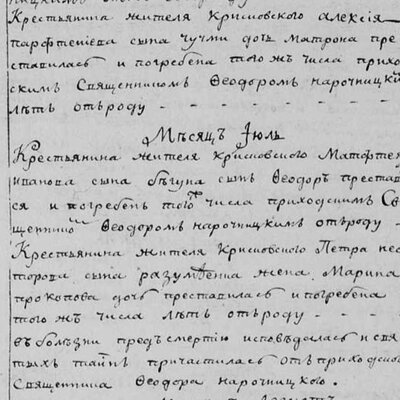 Крестьянина жителя Крисовского алексія
парфтеніева сына чучми дочь матрона пре
ставилась и погребена того жъ числа прихо
скимъ Священникомъ Ѳеодоромъ нарочницкі
лѣтъ отъроду - - - - -
Мѣсяцъ Іюль
Крестьянина жителя Крисовского Матѳея
иванова сына бѣгуна сынъ Ѳеодоръ преста
ся и погребенъ того числа приходскимъ С
щеннико Ѳеодоромъ нарочницкимъ отъроду -
Крестьянина жителя Крисовского Петра нес
торова сына разумѣнка жена Марина
прокопова дочь преставилась и погребена
того жъ числа лѣтъ отъроду - - - -
въ болѣзни предъ смертію исповѣдалась и свя
тыхъ тайнъ причастилась отъ приходског
Священника Ѳеодора нарочницкого.